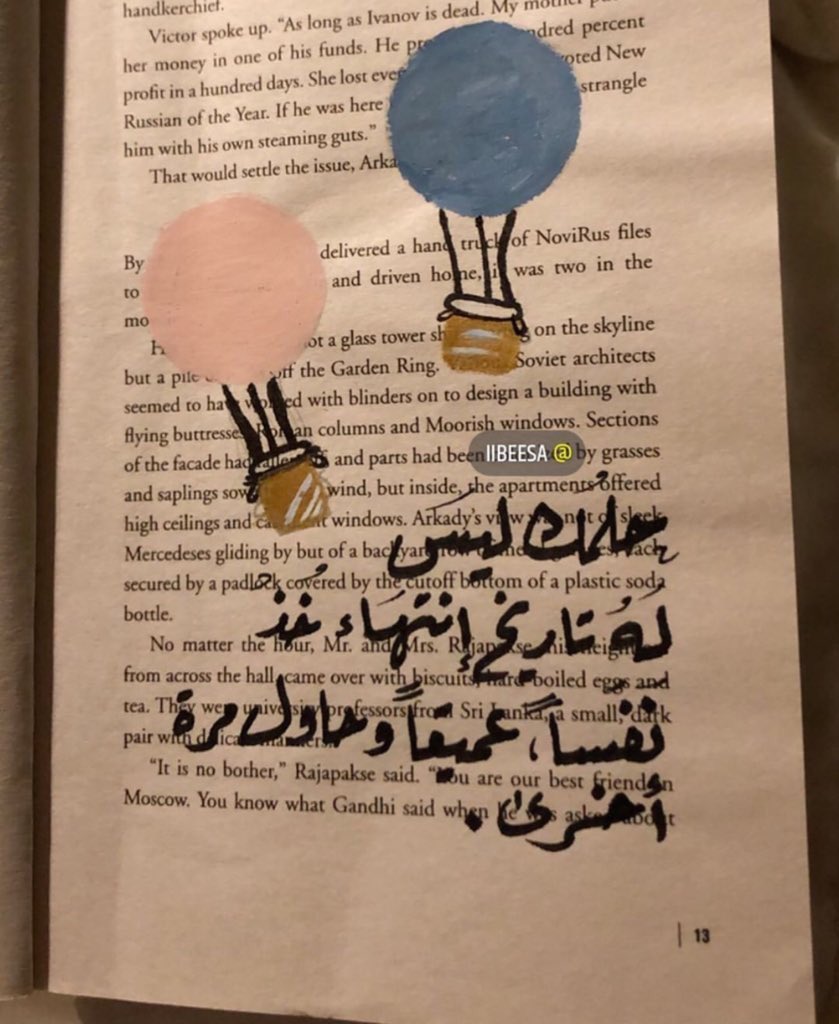 handkerchief.
Victor spoke up. “As long as Ivanov is dead. My mother
her money in one of his funds. He hundred percent
profit in a hundred days. She lost voted New
Russian of the Year. If he was here strangle
him with his own steaming guts.”
That would settle the issue,
By delivered a hand truck of NoviRus files
to and driven home, it was two in the
not a glass tower on the skyline
but a pile off the Garden Ring. Soviet architects
seemed to have worked with blinders on to design a building with
flying buttresses, Roman columns and Moorish windows. Sections
of the facade had and parts had been by grasses
IIBEESA @
and saplings wind, but inside, the apartments offered
high ceilings and windows. Arkady’s view was not of sleek
Mercedeses gliding by but of a backyard
حلمك ليسَ
secured by a padlock covered by the cutoff bottom of a plastic soda
bottle.
لهُ تاريخ إنتهَاء خُذ
No matter the hour, Mr. and Mrs. Rajapakse
from across the hall came over with biscuits, hard-boiled eggs and
tea. They were university professors from Sri Lanka, a small, dark
نفساً، عميقاً وحاول مرة
pair with
“It is no bother,” Rajapakse said. “You are our best friend in
Moscow. You know what Gandhi said when he was asked about
أخرىٰ.
| 13